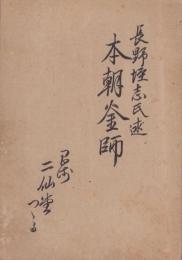 長野垤志氏述
本朝釜師
二仙堂